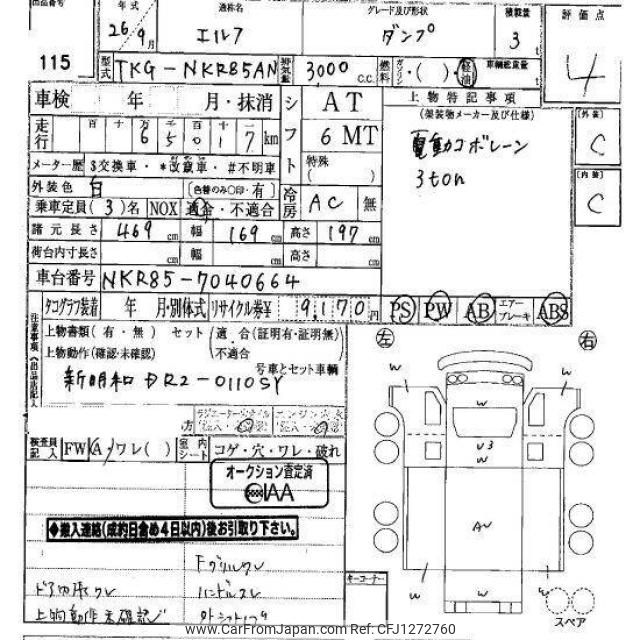 出品番号 年式 通称名 グレード及び形状 積載量 評価点
115 26年9月 エルフ ダンプ 3 t 4
型式 TKG-NKR85AN 排気量 3000 C.C. 燃料 ガソリン・( )・軽油 車輌総重量 t
車検 年 月・抹消 シフト AT 上物特記事項 [外装]
走行 百 十 万 千 百 十 一 6 5 0 1 7 km 6 MT (架装物メーカー及び仕様) C
メーター歴 $交換車・*改竄車・#不明車 特殊 ( ) 電動コボレーン
外装色 白 [色替のみ○印・有] 冷房 AC 無 3ton [内装]
乗車定員(3)名 NOX 適合・不適合 C
諸元長さ 469 cm 幅 169 cm 高さ 197 cm
荷台内寸長さ cm 幅 cm 高さ cm
車台番号 NKR85-7040664
タコグラフ装着 年 月・別体式 リサイクル券¥ 9,170円 PS PW AB エアーブレーキ ABS
注意事項(出品店記入)
上物書類(有・無) セット(適・合(証明有・証明無) 左 右
上物動作(確認・未確認) 不適合 号車とセット車輌
新明和 DR2-0110SY
W W W
方
検査員記入 FW(A・ワレ( ) 室内シート コゲ・穴・ワレ・破れ V3
W W W
オークション査定済
IAA
AW
◆搬入連絡(成約日含め4日以内)後お引取り下さい。
Fグリルワレ
ドア内張ワレ ハンドルスレ キーコーナー W W
上物動作未確認
スペア
www.CarFromJapan.com Ref: CFJ1272760